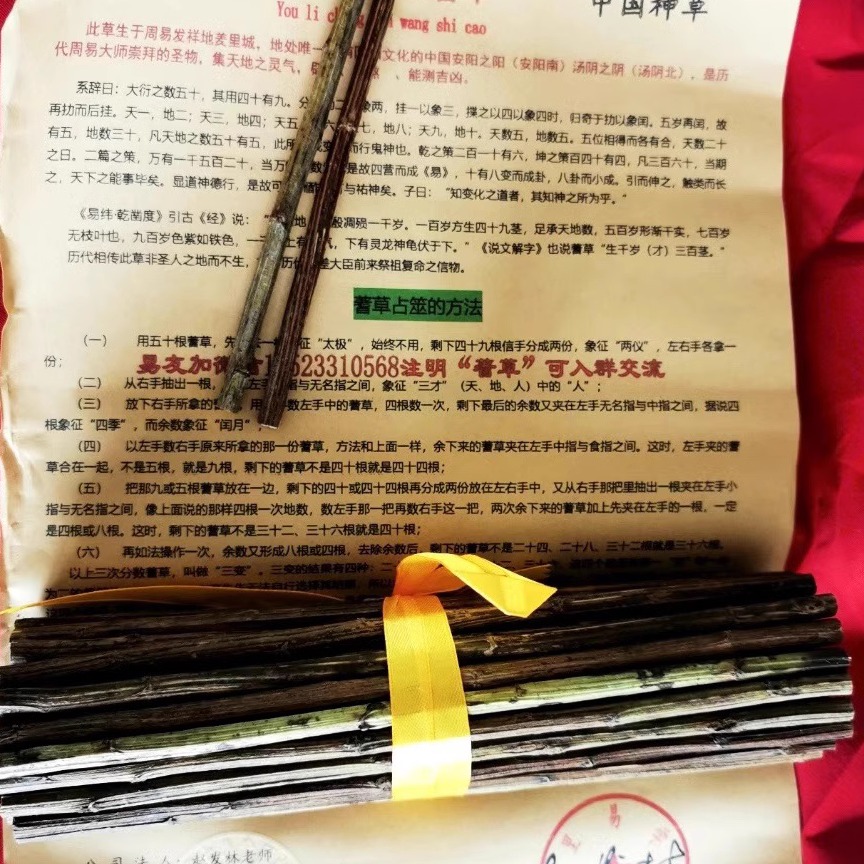 You li ch wang shi cao
中国神草
此草生于周易发祥地羑里城，地处唯一 文化的中国安阳之阳（安阳南）汤阴之阴（汤阴北），是历
代周易大师崇拜的圣物，集天地之灵气， 、能测吉凶。
系辞曰：大衍之数五十，其用四十有九。分 二 象两，挂一以象三，揲之以四以象四时，归奇于扐以象闰。五岁再闰，故
再扐而后挂。天一，地二；天三，地四；天五 六 七，地八；天九，地十。天数五，地数五。五位相得而各有合，天数二十
有五，地数三十，凡天地之数五十有五，此所 成变 而行鬼神也。乾之策二百一十有六，坤之策百四十有四，凡三百六十，当期
之日。二篇之策，万有一千五百二十，当万 数 是故四营而成《易》，十有八变而成卦，八卦而小成。引而伸之，触类而长
之，天下之能事毕矣。显道神德行，是故可 酬 与祐神矣。子曰：“知变化之道者，其知神之所为乎。”
《易纬·乾凿度》引古《经》说：“ 地 殷凋殒一千岁。一百岁方生四十九茎，足承天地数，五百岁形渐干实，七百岁
无枝叶也，九百岁色紫如铁色，一千 上有 气，下有灵龙神龟伏于下。”《说文解字》也说蓍草“生千岁（才）三百茎。”
历代相传此草非圣人之地而不生， 历 差大臣前来祭祖复命之信物。
蓍草占筮的方法
（一） 用五十根蓍草，先 一 征“太极”，始终不用，剩下四十九根信手分成两份，象征“两仪”，左右手各拿一
份；
易友加微信1 523310568注明“蓍草”可入群交流
（二） 从右手抽出一根， 左手 指与无名指之间，象征“三才”（天、地、人）中的“人”；
（三） 放下右手所拿的蓍 用 数左手中的蓍草，四根数一次，剩下最后的余数又夹在左手无名指与中指之间，据说四
根象征“四季”，而余数象征“闰月”；
（四） 以左手数右手原来所拿的那一份蓍草，方法和上面一样，余下来的蓍草夹在左手中指与食指之间。这时，左手夹的蓍
草合在一起，不是五根，就是九根，剩下的蓍草不是四十根就是四十四根；
（五） 把那九或五根蓍草放在一边，剩下的四十或四十四根再分成两份放在左右手中，又从右手那把里抽出一根夹在左手小
指与无名指之间，像上面说的那样四根一次地数，数左手那一把再数右手这一把，两次余下来的蓍草加上先夹在左手的一根，一定
是四根或八根。这时，剩下的蓍草不是三十二、三十六根就是四十根；
（六） 再如法操作一次，余数又形成八根或四根，去除余数后，剩下的蓍草不是二十四、二十八、三十二根就是三十六根。
以上三次分数蓍草，叫做“三变”。三变的结果有四种：二
公司法人： 发林老师
里 易